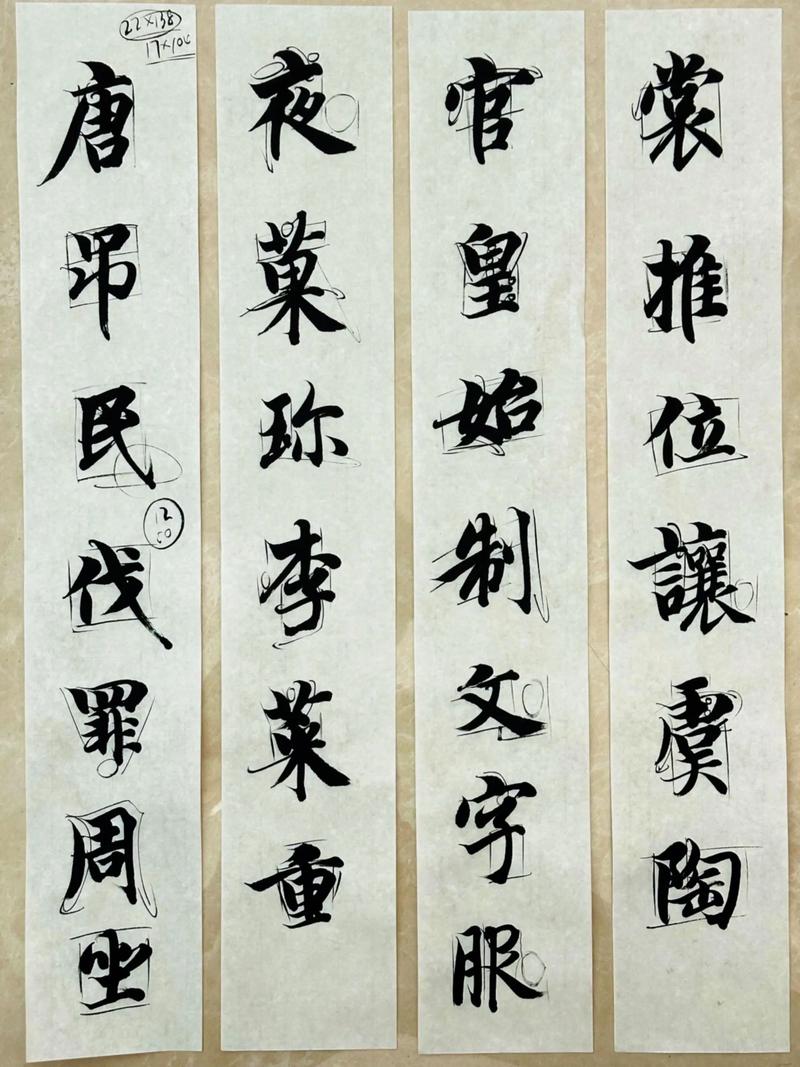 22×138
17×10
唐吊民伐罪周坐
夜菓珎李菜重
官皇始制文字服
裳推位讓虞陶